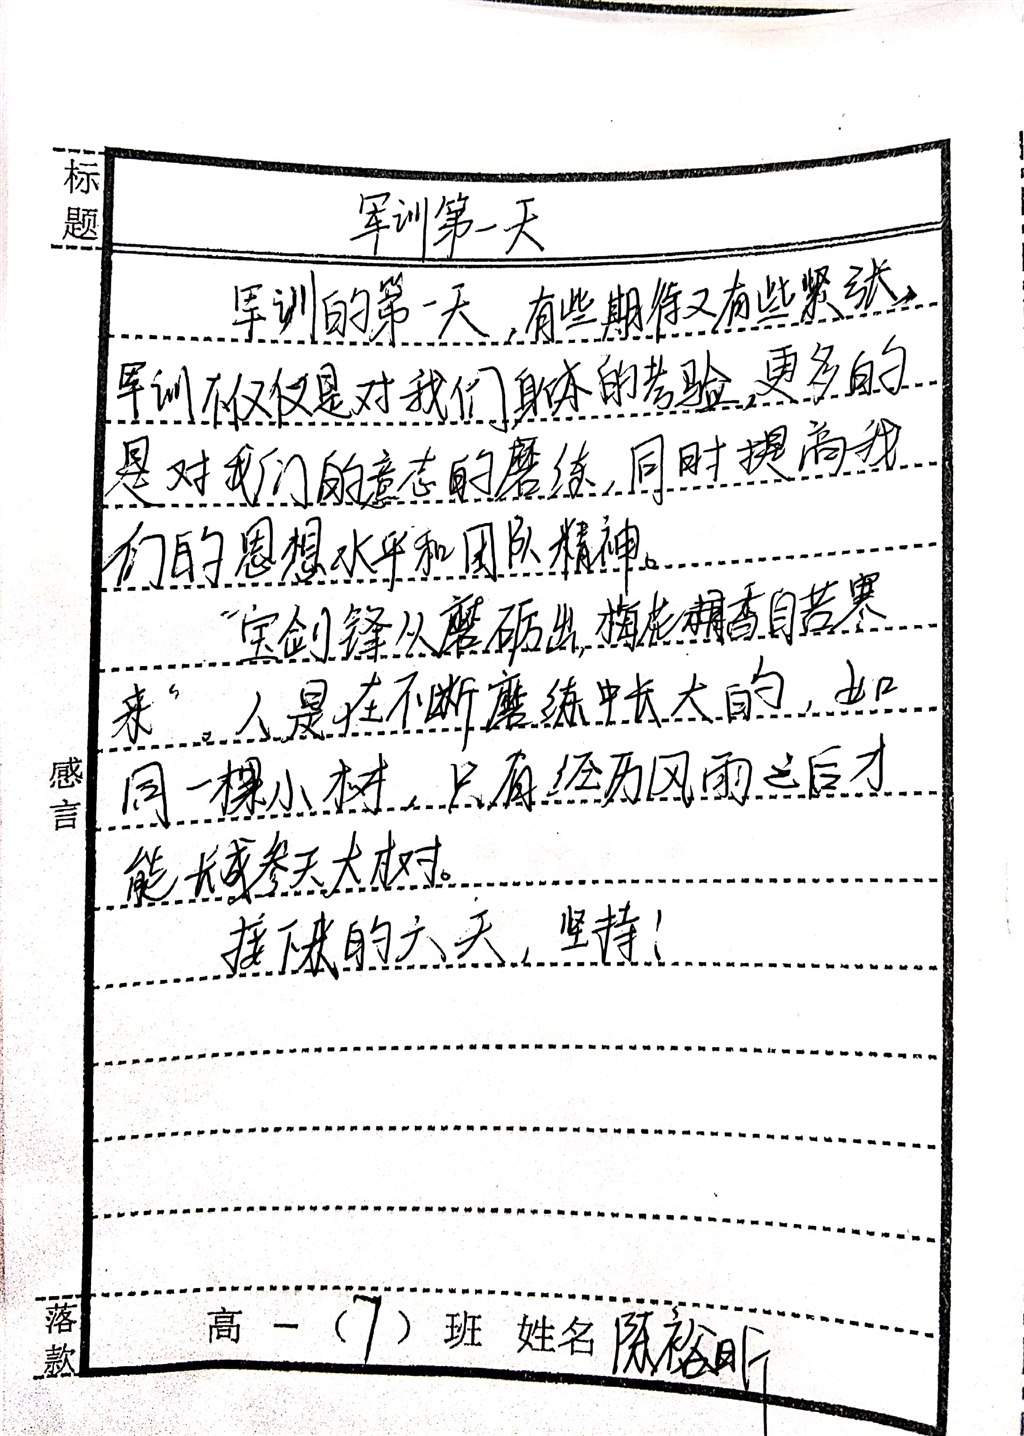 标题
军训第一天
军训的第一天，有些期待又有些紧张，
军训不仅仅是对我们身体的考验，更多的
是对我们的意志的磨练，同时提高我
们的思想水平和团队精神。
“宝剑锋从磨砺出，梅花香自苦寒
来”。人是在不断磨练中长大的，如
同一棵小树，只有经历风雨之后才
能长成参天大树。
接下来的六天，坚持！
感言
落款
高一（7）班 姓名 陈裕昕